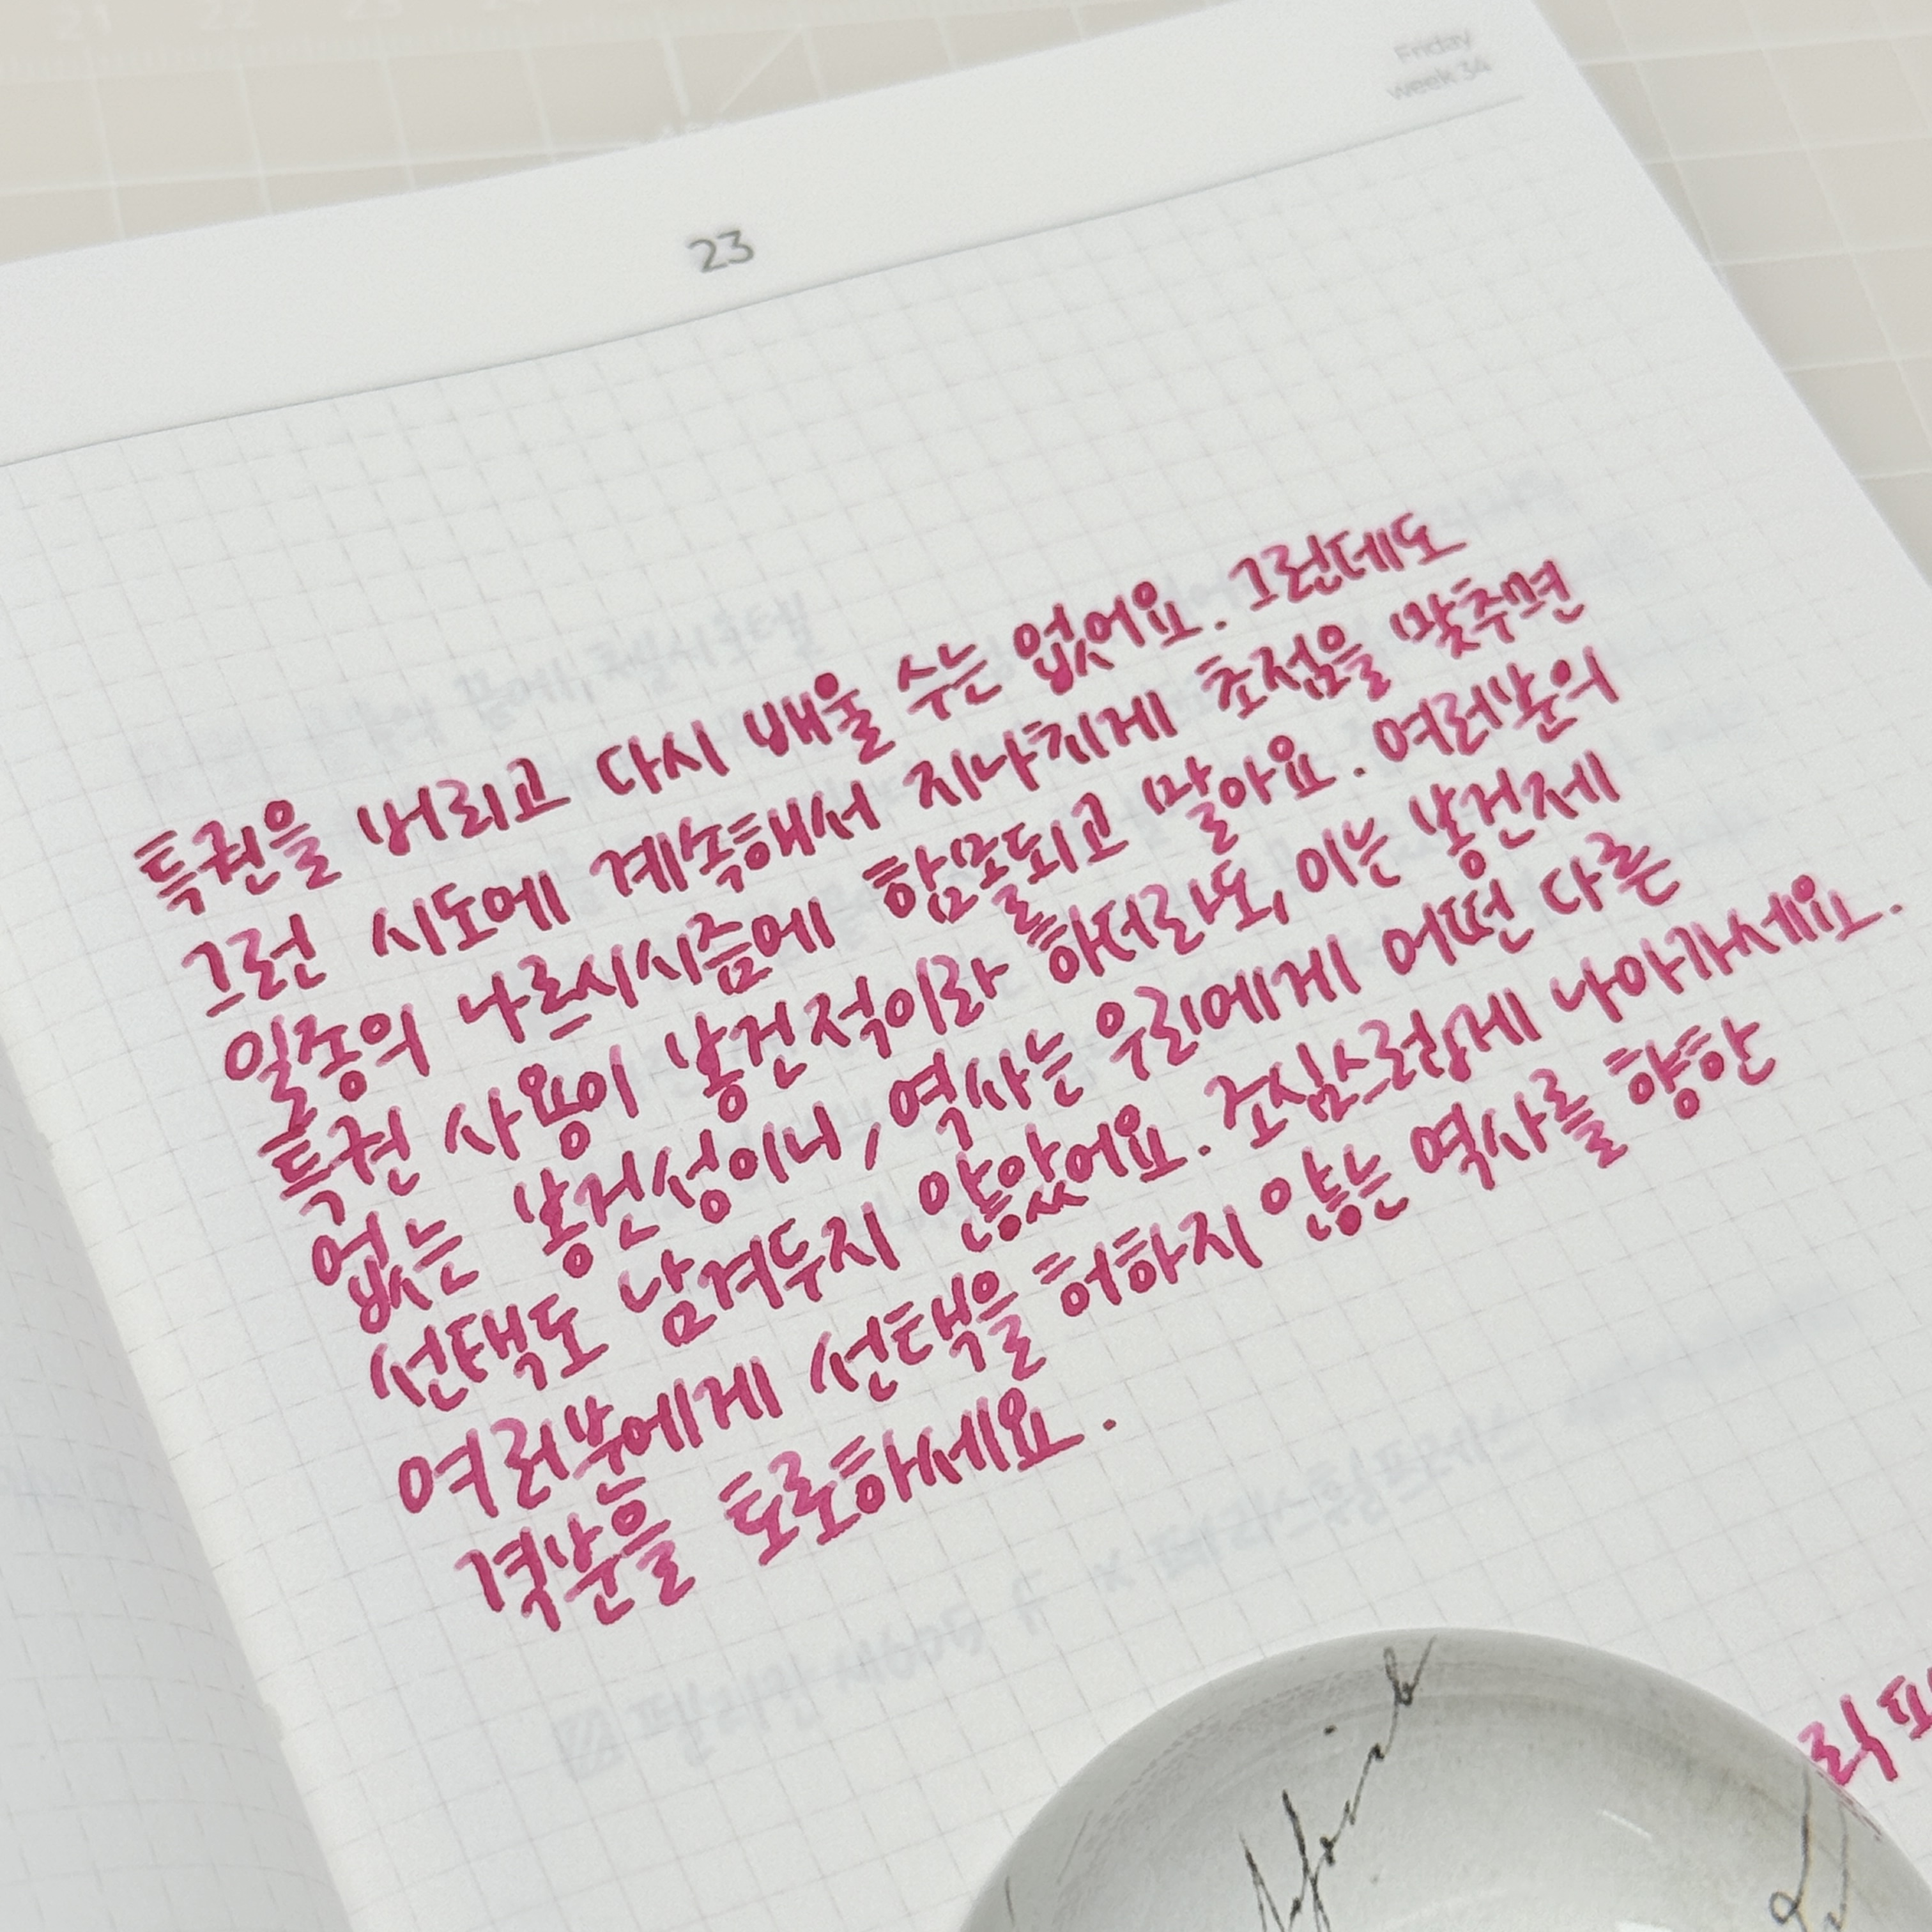 Friday
week 34
23
특권을 버리고 다시 배울 수는 없어요. 그런데도
그런 시도에 계속해서 지나치게 초점을 맞추면
일종의 나르시시즘에 함몰되고 말아요. 여러분의
특권 사용이 봉건적이라 하더라도, 이는 봉건제
없는 봉건성이니, 역사는 우리에게 어떤 다른
선택도 남겨두지 않았어요. 조심스럽게 나아가세요.
여러분에게 선택을 허하지 않는 역사를 향한
격분을 토로하세요.